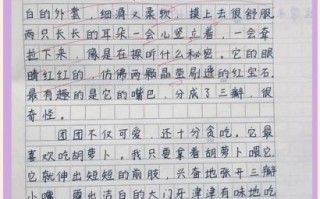 白的外套，细滑又柔软，摸上去很舒服
两只长长的耳朵一会儿竖立着，一会耷
拉下来，像是在探听什么秘密。它的眼
睛红红的，仿佛两颗晶莹剔透的红宝石
最有趣的是它的嘴巴，分成了三瓣，很
奇怪。
团团不仅可爱，还十分贪吃。它最
喜欢吃胡萝卜，我只要拿着胡萝卜喂它
它就伸出短短的前肢，兴奋地张开三瓣
小嘴，露出洁白的大门牙津津有味地吃